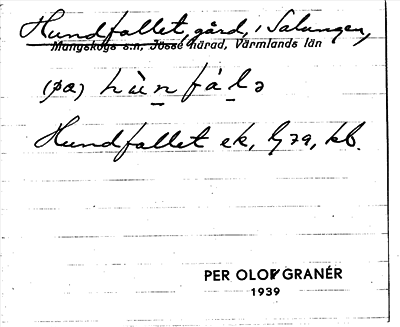 Hundfallet, gård, i Salungen,
Mangskogs s:n, Jösse härad, Värmlands län
(pæ) hùnfálə
Hundfallet ek, Gj 79, kb.
PER OLOF GRANÉR
1939